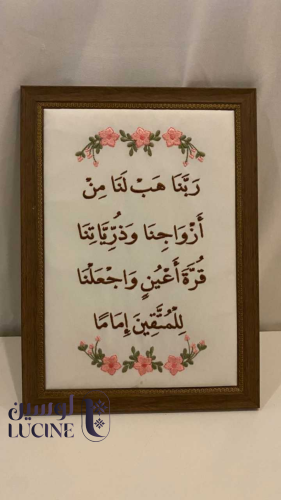 رَبَّنَا هَبْ لَنَا مِنْ
أَزْوَاجِنَا وَذُرِّيَّاتِنَا
قُرَّةَ أَعْيُنٍ وَاجْعَلْنَا
لِلْمُتَّقِينَ إِمَامًا
لوسين
LUCINE